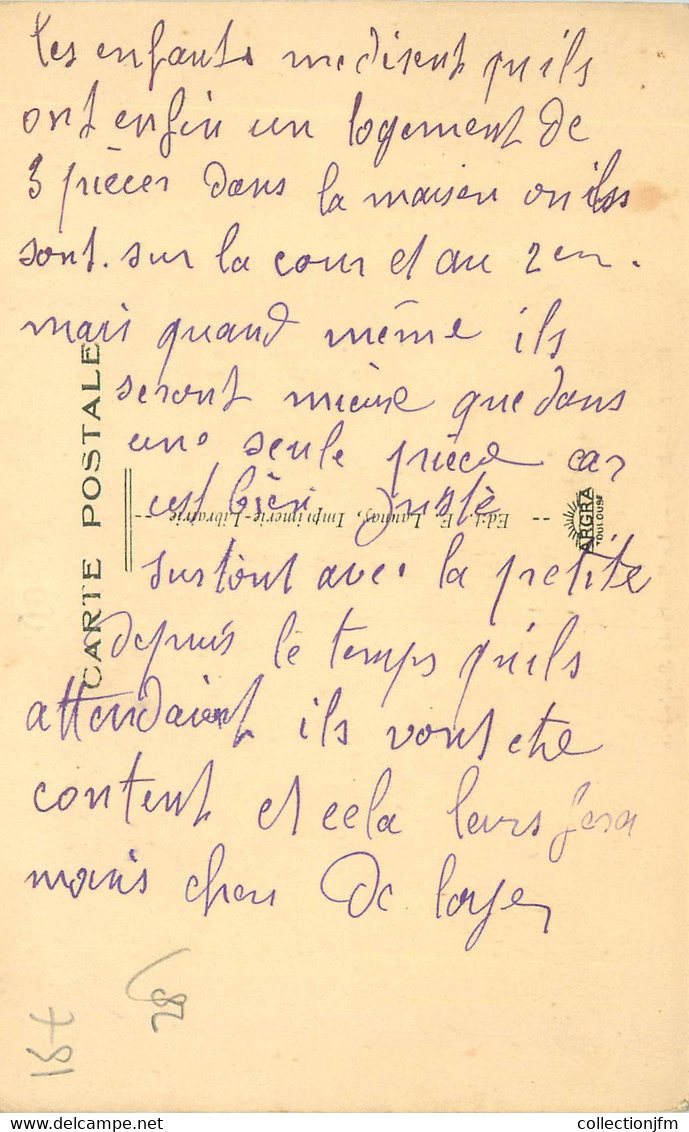 les enfants me disent qu'ils
ont enfin un logement de
3 pièces dans la maison ou ils
sont. sur la cour et au 2em.
mais quand même ils
seront mieux que dans
une seule pièce car
c'est bien juste
surtout avec la petite
depuis le temps qu'ils
attendaient ils vont etre
content et cela leurs fera
moins cher de loyer
CARTE POSTALE
Edit. E. Launay, Imprimerie-Librairie
ARGRA
TOULOUSE
28
collectionjfm